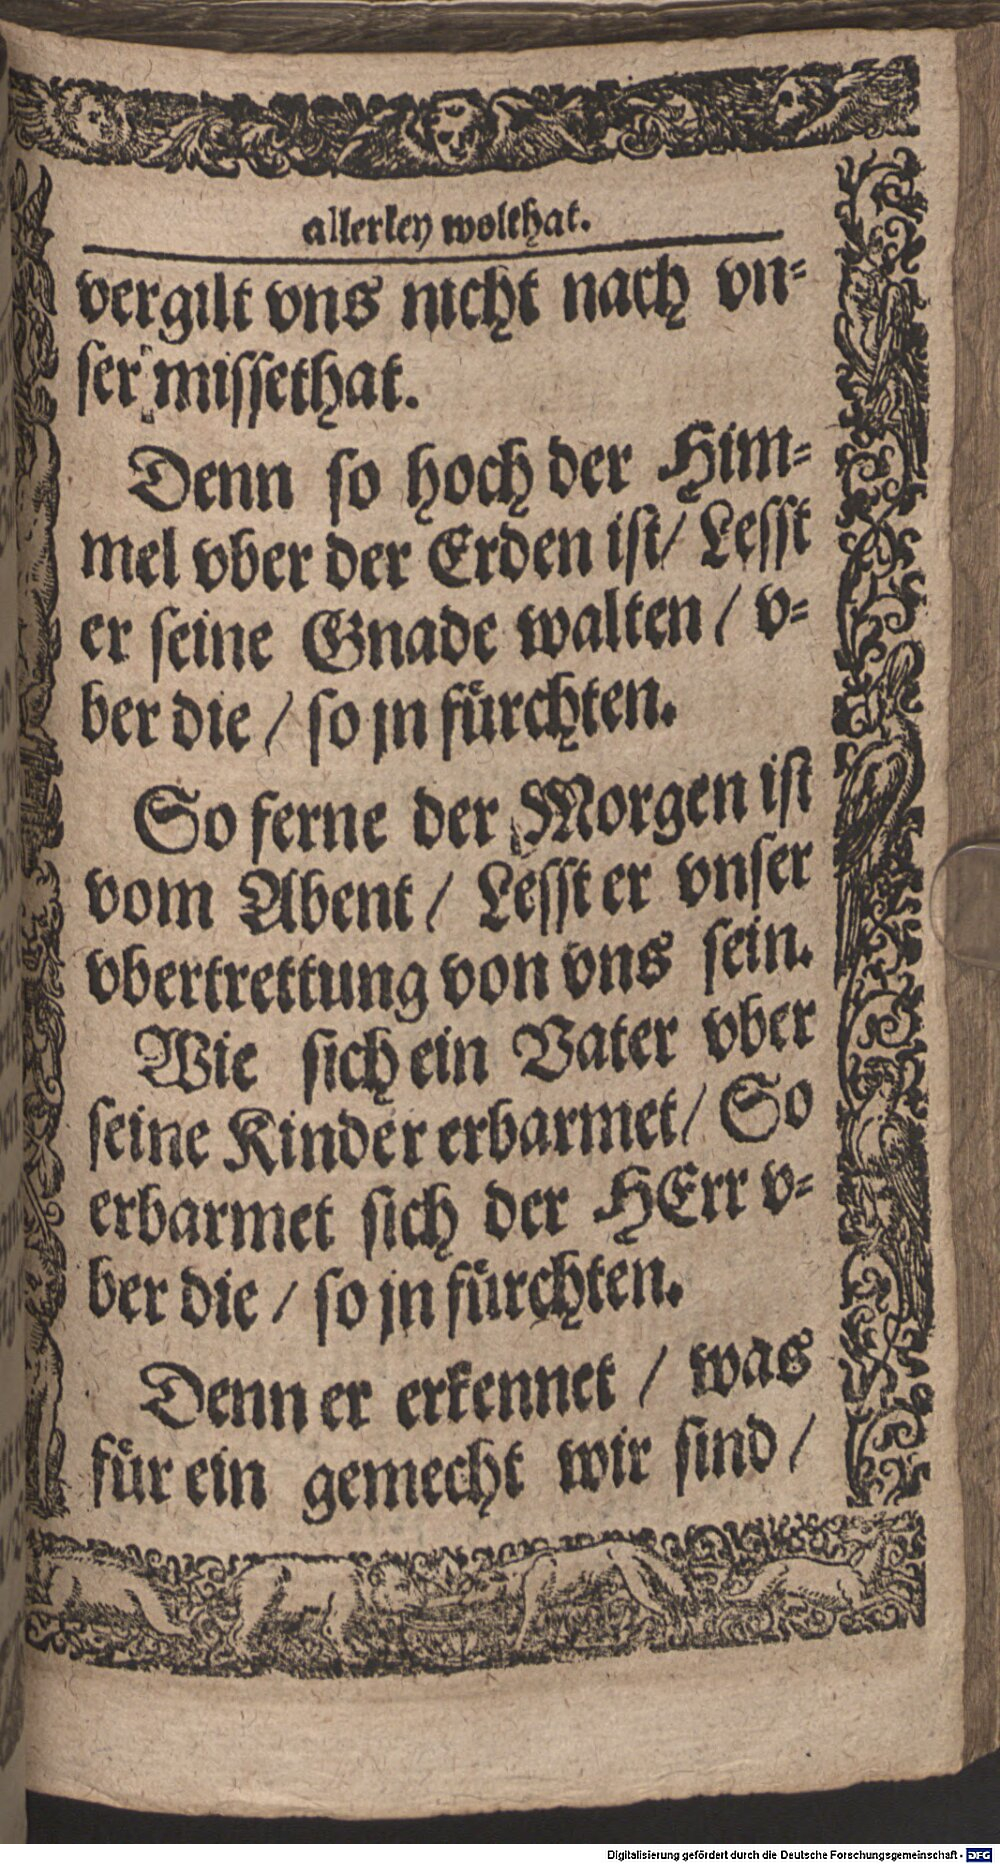 allerley wolthat.
vergilt vns nicht nach vn-
ser missethat.
Denn so hoch der Him-
mel vber der Erden ist/ Lesst
er seine Gnade walten / v-
ber die / so jn fürchten.
So ferne der Morgen ist
vom Abent / Lesst er vnser
vbertrettung von vns sein.
Wie sich ein Vater vber
seine Kinder erbarmet/ So
erbarmet sich der HErr v-
ber die / so jn fürchten.
Denn er erkennet / was
für ein gemecht wir sind /
Digitalisierung gefördert durch die Deutsche Forschungsgemeinschaft - DFG